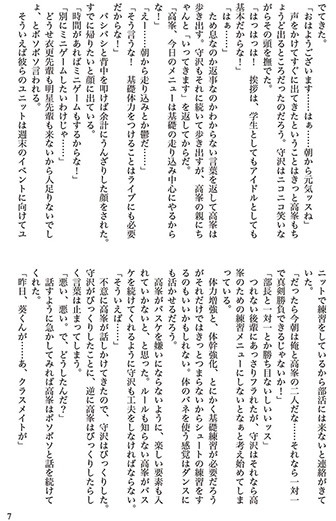 できた。
「おはようございます……はぁ……朝から元気ッスね」
声をかけてすぐに出てきたということはきっと高峯もち
ょうど出るところだったのだろう。守沢はニコニコ笑いな
がらその頭を撫でた。
「はっはっは!　挨拶は、学生としてもアイドルとしても
基本だからな!」
「はぁ……」
ため息なのか返事なのかわからない言葉を返して高峯は
歩き出す。守沢もそれに続いて歩き出すが、高峯の親にち
ゃんと「いってきます」を返してからだ。
「高峯、今日のメニューは基礎の走り込み中心にやるから
な!」
「え!……朝から走り込みとか鬱だ……」
「そう言うな!　基礎体力をつけることはライブにも必要
だからな!」
バシバシと背中を叩けば余計にうんざりした顔をされた。
すでに帰りたいと顔に出ている。
「時間があればミニゲームもするからな!」
「別にミニゲームしたいわけじゃ……」
「どうせ衣更先輩も明星先輩も来ないから人足りないでし
ょ、とボソボソ言われる。
そういえば彼らのユニットは週末のイベントに向けてユ
ニットで練習をしているから部活には来ないと連絡がきて
いた。
「だったら今朝は俺と高峯の二人だな!……それなら一対一
で真剣勝負できるじゃないか!」
「部長と一対一とか勝ち目ないしいいッス」
つれない後輩にあっさりフラれたが、守沢はそれなら高
峯のための練習メニューにしないとなぁと考え始めてしま
っている。
体力増強と、体幹強化、とにかく基礎練習が必要だろう
がそれだけではきっとつまらないからシュートの練習をす
るのもいいかもしれない。体のバネを使う感覚はダンスに
も活かせるだろう。
高峯がバスケを嫌いにならないように、楽しい要素も入
れていかないと、と思った。ルールも知らない高峯がバス
ケを続けてくれるように守沢も工夫をしなければならない。
「そういえば……」
不意に高峯が話しかけてきたので、守沢はびっくりした。
守沢がびっくりしたことに、逆に高峯はびっくりしたらし
く言葉は止まってしまう。
「悪い、悪い。で、どうしたんだ?」
話すように急かしてみれば高峯はボソボソと話を続けて
くれた。
「昨日、葵くんが……あ、クラスメイトが」
7